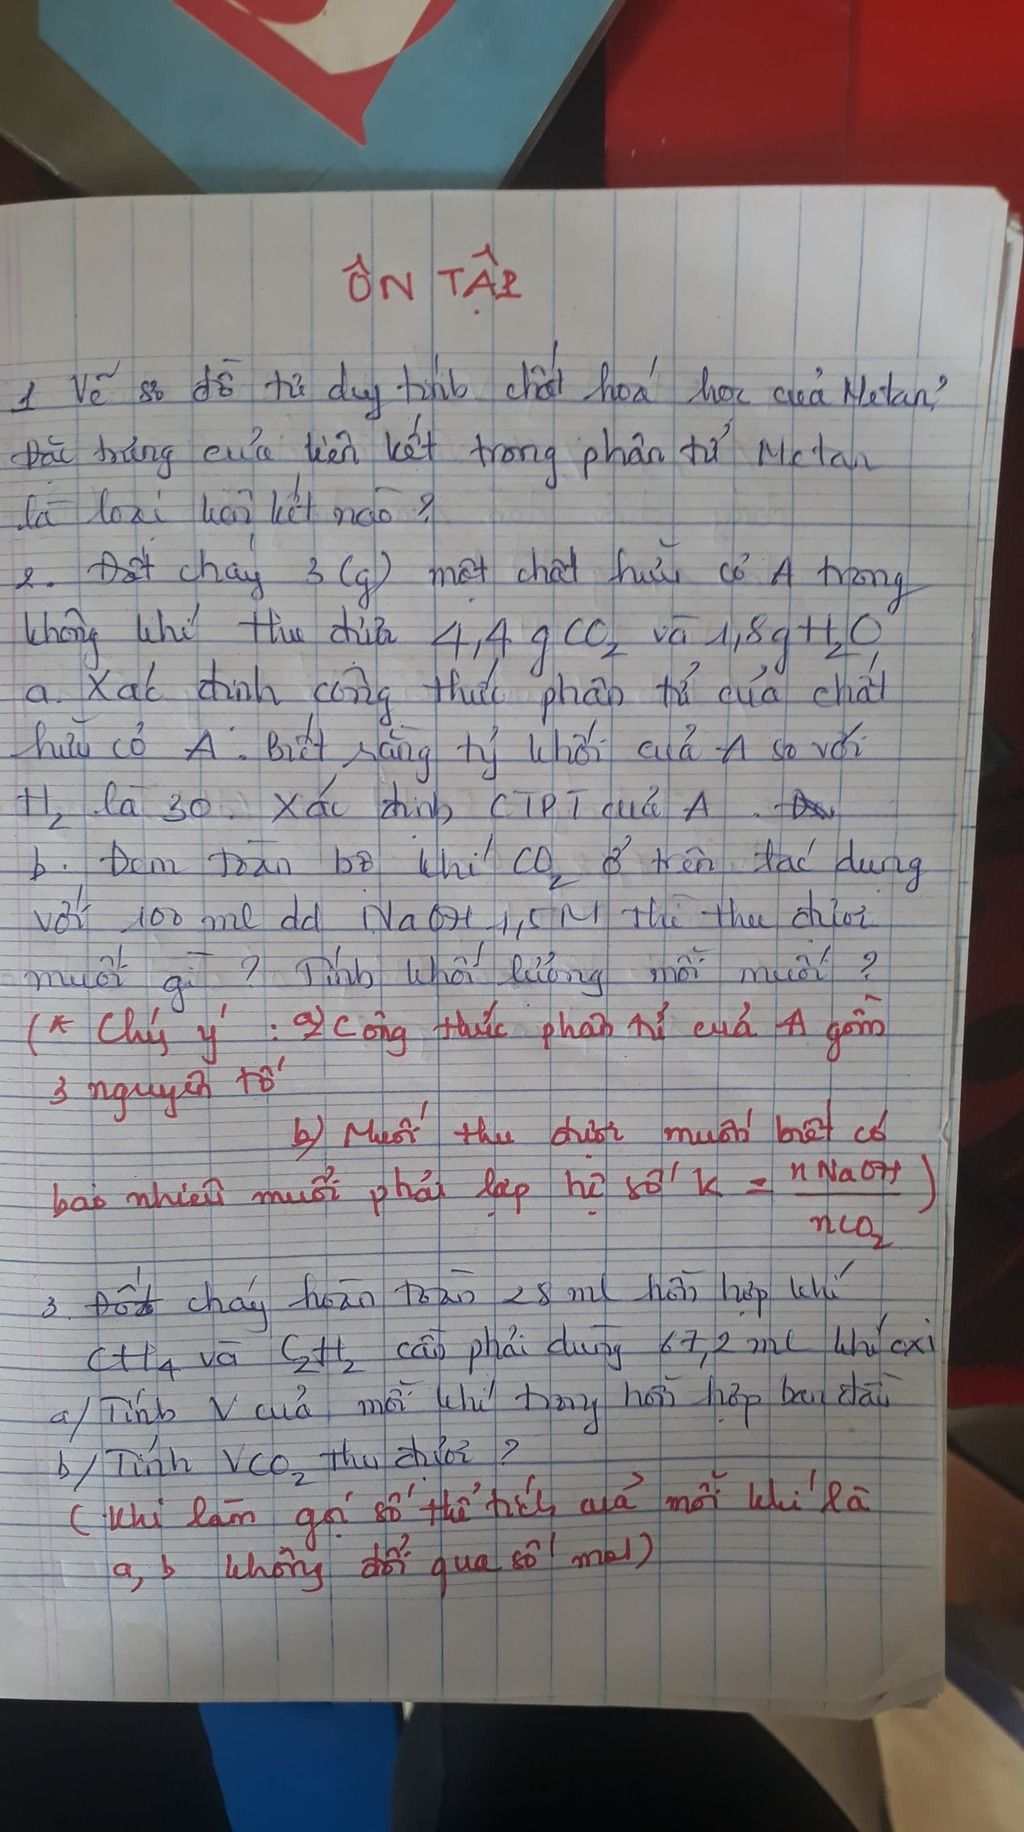 ÔN TẬP
1 Vẽ sơ đồ tư duy tính chất hoá học của Metan?
Đặc trưng của liên kết trong phân tử Metan
là loại liên kết nào?
2. Đốt cháy 3(g) một chất hữu cơ A trong
không khí thu được 4,4 g CO₂ và 1,8g H₂O
a. Xác định công thức phân tử của chất
hữu cơ A. Biết rằng tỷ khối của A so với
H₂ là 30. Xác định CTPT của A.
b. Đem toàn bộ khí CO₂ ở trên tác dụng
với 100 ml dd NaOH 1,5M thì thu được
muối gì? Tính khối lượng mỗi muối?
(* Chú ý: a) Công thức phân tử của A gồm
3 nguyên tố
b) Muối thu được muốn biết có
bao nhiêu muối phải lập hệ số k = nNaOH/nCO₂)
3. Đốt cháy hoàn toàn 28 ml hỗn hợp khí
CH₄ và C₂H₂ cần phải dùng 67,2 ml khí oxi
a/ Tính V của mỗi khí trong hỗn hợp ban đầu
b/ Tính VCO₂ thu được?
(Khi làm gọi số thể tích của mỗi khí là
a, b không đổi qua số mol)